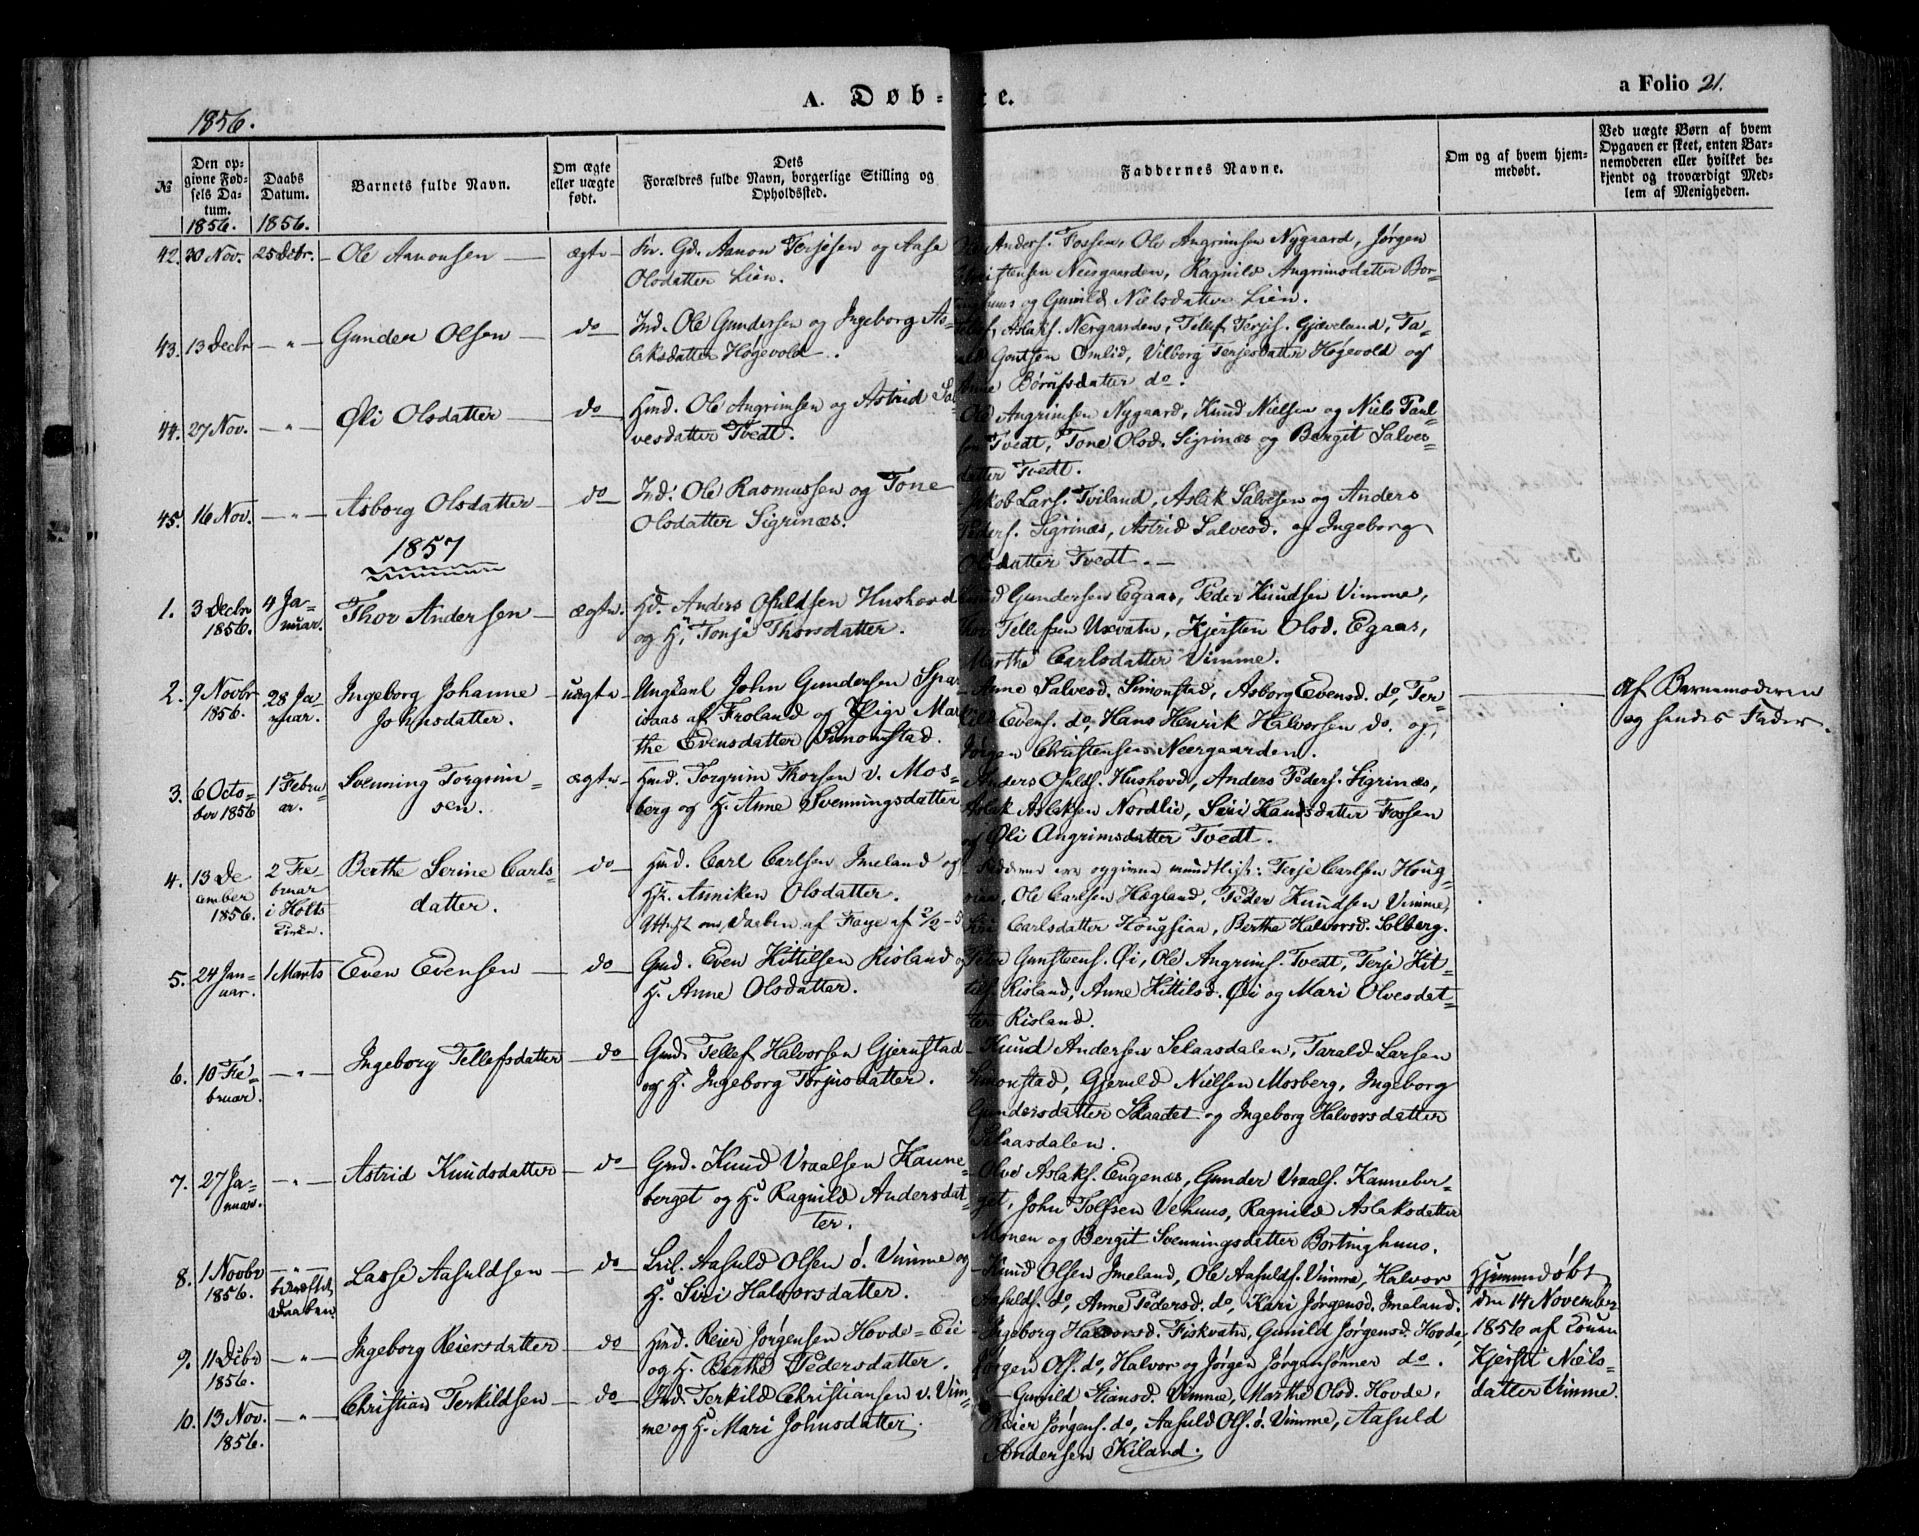 1856.
A. Døb- te.
a Folio 21.
№
Den op-
givne Fød-
sels Da-
tum.
1856.
Daabs
Datum.
1856.
Barnets fulde Navn.
Om ægte
eller uægte
født.
Dets
Forældres fulde Navn, borgerlige Stilling og
Opholdssted.
Faddernes Navne.
Om og af hvem hjem-
medøbt.
Ved uægte Børn af hvem
Opgaven er skeet, enten Bar-
nemoderen eller hvilket be-
kjendt og troværdigt Med-
lem af Menigheden.
42. 30 Nov. 25 Decbr. Ole Aanonsen ægte Gd. Aanon Terjesen og Aase
Olsdatter Lien.
Anders. Fossen, Ole Angrimsen Nygaard, Jørgen
Christensen Neergaarden, Ragnild Angrimsdatter Bor-
og Gunild Nielsdatter Lien.
43. 13 Decbr — " — Gunder Olsen do Ind. Ole Gundersen og Ingeborg As-
laksdatter Høgevold.
Tellef Aslaks. Nergaarden, Tellef Terjes. Gjeveland, Ta-
Omlid, Vilborg Terjesdatter Høgevold og
Anne do.
44. 27 Nov. — " — Øli Olsdatter do Hmd. Ole Angrimsen og Astrid Sal-
vesdatter Tvedt.
Ole Angrimsen Nygaard, Knud Nielsen og Niels Paul-
sen Tvedt, Tone Olsd. Sigrinæs og Bergit Salves-
datter Tvedt.
45. 16 Nov. — " — Asborg Olsdatter do Ind. Ole Rasmussen og Tone
Olsdatter Sigrinæs.
Jakob Lars. Tviland, Aslak Salvesen og Anders
Peders. Sigrinæs, Astrid Salvesd. og Ingeborg
Olsdatter Tvedt.
1857
1. 3 Decbr 1856. 4 Ja-
nuar. Thov Andersen ægte. Gd. Anders Osuldsen Hushovd
og H. Tonje Thorsdatter.
Knud Gundersen Egaas, Peder Knudsen Vimme,
Thov Tellefsen Uxvatn, Kjersten Olsd. Egaas,
Marthe Carlsdatter Vimme.
2. 9 Novbr 1856. 28 Ja-
nuar. Ingeborg Johanne
Johnsdatter. uægte Ungkarl John Gundersen
af Froland og Pige Mar-
the Evensdatter Simonstad.
Anne Salvesd. Simonstad, Asborg Evensd. do, Ter-
kild Evens. do, Hans Henrik Halvorsen do. og
Jørgen Christensen Neergaarden.
af Barnemoderen
og hendes Fader.
3. 6 Octo-
ber 1856 1 Febru-
ar. Svenning Torgrim-
sen. ægte Hmd. Torgrim Thorsen v. Mos-
berg og H. Anne Svenningsdatter
Anders Osulds. Hushovd, Anders Peders. Sigrinæs,
Aslak Aslaksen Nordlie, Siri Hansdatter Fossen
og Øli Angrimsdatter Tvedt.
4. 13 De
cember
1856. 2 Fe-
bruar
i Holts
Kirke. Berthe Serine Carls-
datter. do Hmd. Carl Carlsen Imeland og
Hr. Anniken Olsdatter.
Attest om Daaben af Faye af 2/2 - 5
Fadderne ere opgivne mundtligt: Terje Carlsen Houg-
sian, Ole Carlsen Hægland, Peder Knudsen Vimme,
Siri Carlsdatter Hougsiaa, Berthe Halvorsd. Solberg.
5. 24 Jan-
uar. 1 Marts Even Evensen do Gmd. Even Kittilsen Risland og
H. Anne Olsdatter.
Gunstens. Øi, Ole Angrims. Tvedt, Terje Kit-
tils. Risland, Anne Kittilsd. Øi og Mari Olvesdat-
ter Risland.
6. 10 Fe-
bruar. — " — Ingeborg Tellefsdatter do Gmd. Tellef Halvorsen Gjernstad
og H. Ingeborg Torjusdatter.
Knud Andersen Selaasdalen, Tarald Larsen
Simonstad, Gjeruld Nielsen Mosberg, Ingeborg
Gundersdatter Skaadet og Ingeborg Halvorsdatter
Selaasdalen.
7. 27 Ja-
nuar. — " — Astrid Knudsdatter do Gmd. Knud Vraalsen Kanne-
berget og H. Ragnild Andersdat-
ter.
Olve Aslaks. Eugenæs, Gunder Vraals. Kanneber-
get, John Tolfsen Vehuus, Ragnild Aslaksdatter
Monen og Bergit Svenningsdatter Bortinghuus.
8. 1 Novbr
1856. — " —
bekræftet
Daaben. Lasse Aasuldsen do Aasuld Olsen ø. Vimme og
H. Siri Halvorsdatter.
Knud Olsen Imeland, Ole Aasulds. Vimme, Halvor
Aasulds. do, Anne Pedersd. do, Kari Jørgensd. Imeland.
Hjemmedøbt
den 14 November
1856 af Konen
Kjersti Niels-
datter Vimme.
9. 11 Decbr
1856. — " — Ingeborg Reiersdatter do Hmd. Reier Jørgensen Hovde-Eie
og H. Berthe Pedersdatter.
Ingeborg Halvorsd. Fiskvatn, Gunild Jørgensd. Hovde,
Jørgen Ols. do, Halvor og Jørgen Jørgensønner do.
10. 13 Nov.
1856. — " — Christian Terkildsen do Ind. Terkild Christiansen v. Vim-
me og H. Mari Johnsdatter.
Gunild Stiansd. Vimme, Marthe Olsd. Hovde,
Reier Jørgens. do, Aasuld Ols. ø. Vimme, Aasuld
Andersen Kiland.